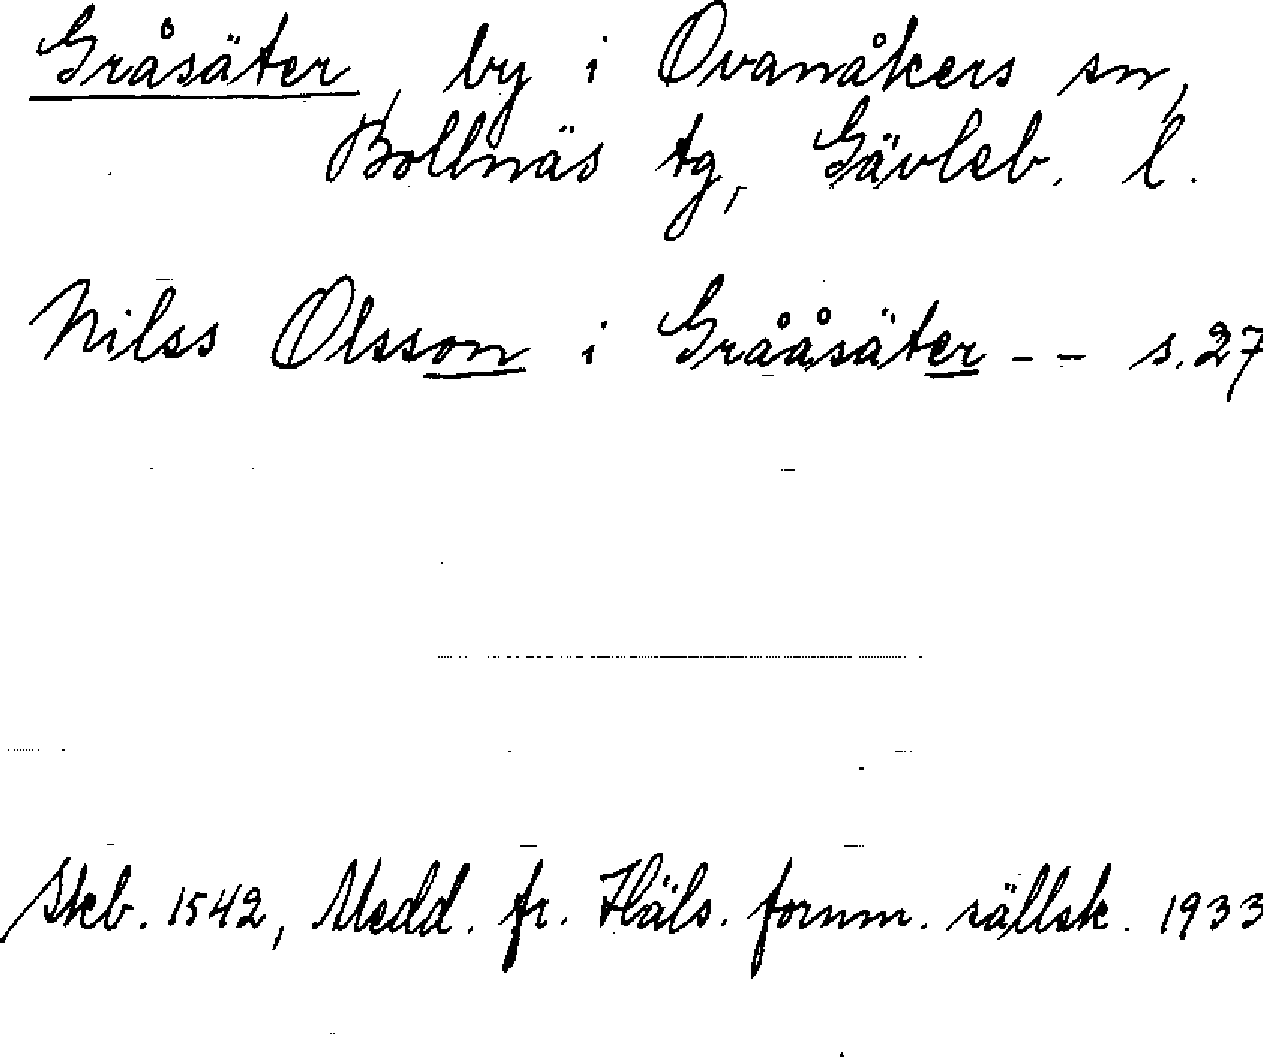 Gråsäter, by i Ovanåkers sn,
Bollnäs tg, Gävleb. l.
Nilss Olsson i Grååsäter - - s. 27
Skb. 1542, Medd. fr. Häls. fornm. sällsk. 1933